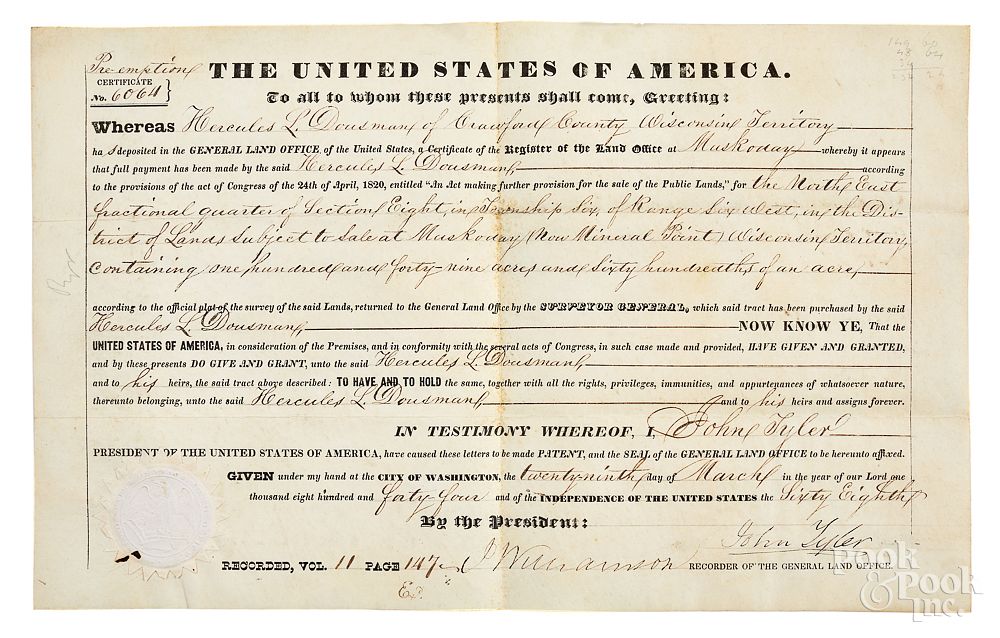 Pre-emption
CERTIFICATE
No. 6064
THE UNITED STATES OF AMERICA.
To all to whom these presents shall come, Greeting:
Whereas Hercules L. Dousman, of Crawford County, Wisconsin Territory
ha s deposited in the GENERAL LAND OFFICE, of the United States, a Certificate of the Register of the Land Office at Muskoday whereby it appears
that full payment has been made by the said Hercules L. Dousman, according
to the provisions of the act of Congress of the 24th of April, 1820, entitled "An Act making further provision for the sale of the Public Lands," for the North East
fractional quarter of Section Eight, in Township Six, of Range Six West, in the Dis-
trict of Lands Subject to Sale at Muskoday (Now Mineral Point) Wisconsin Territory,
Containing one hundred and forty-nine acres and sixty hundredths of an acre,
according to the official plat of the survey of the said Lands, returned to the General Land Office by the SURVEYOR GENERAL, which said tract has been purchased by the said
Hercules L. Dousman, NOW KNOW YE, That the
UNITED STATES OF AMERICA, in consideration of the Premises, and in conformity with the several acts of Congress, in such case made and provided, HAVE GIVEN AND GRANTED,
and by these presents DO GIVE AND GRANT, unto the said Hercules L. Dousman,
and to his heirs, the said tract above described: TO HAVE AND TO HOLD the same, together with all the rights, privileges, immunities, and appurtenances of whatsoever nature,
thereunto belonging, unto the said Hercules L. Dousman, and to his heirs and assigns forever.
IN TESTIMONY WHEREOF, I, John Tyler
PRESIDENT OF THE UNITED STATES OF AMERICA, have caused these letters to be made PATENT, and the SEAL of the GENERAL LAND OFFICE to be hereunto affixed.
GIVEN under my hand at the CITY OF WASHINGTON, the twenty-ninth day of March in the year of our Lord one
thousand eight hundred and forty-four and of the INDEPENDENCE OF THE UNITED STATES the Sixty Eighth
By the President: John Tyler
RECORDED, VOL. 11 PAGE 147 J Williamson RECORDER OF THE GENERAL LAND OFFICE.
Ex.
Pook
& Pook
Inc.